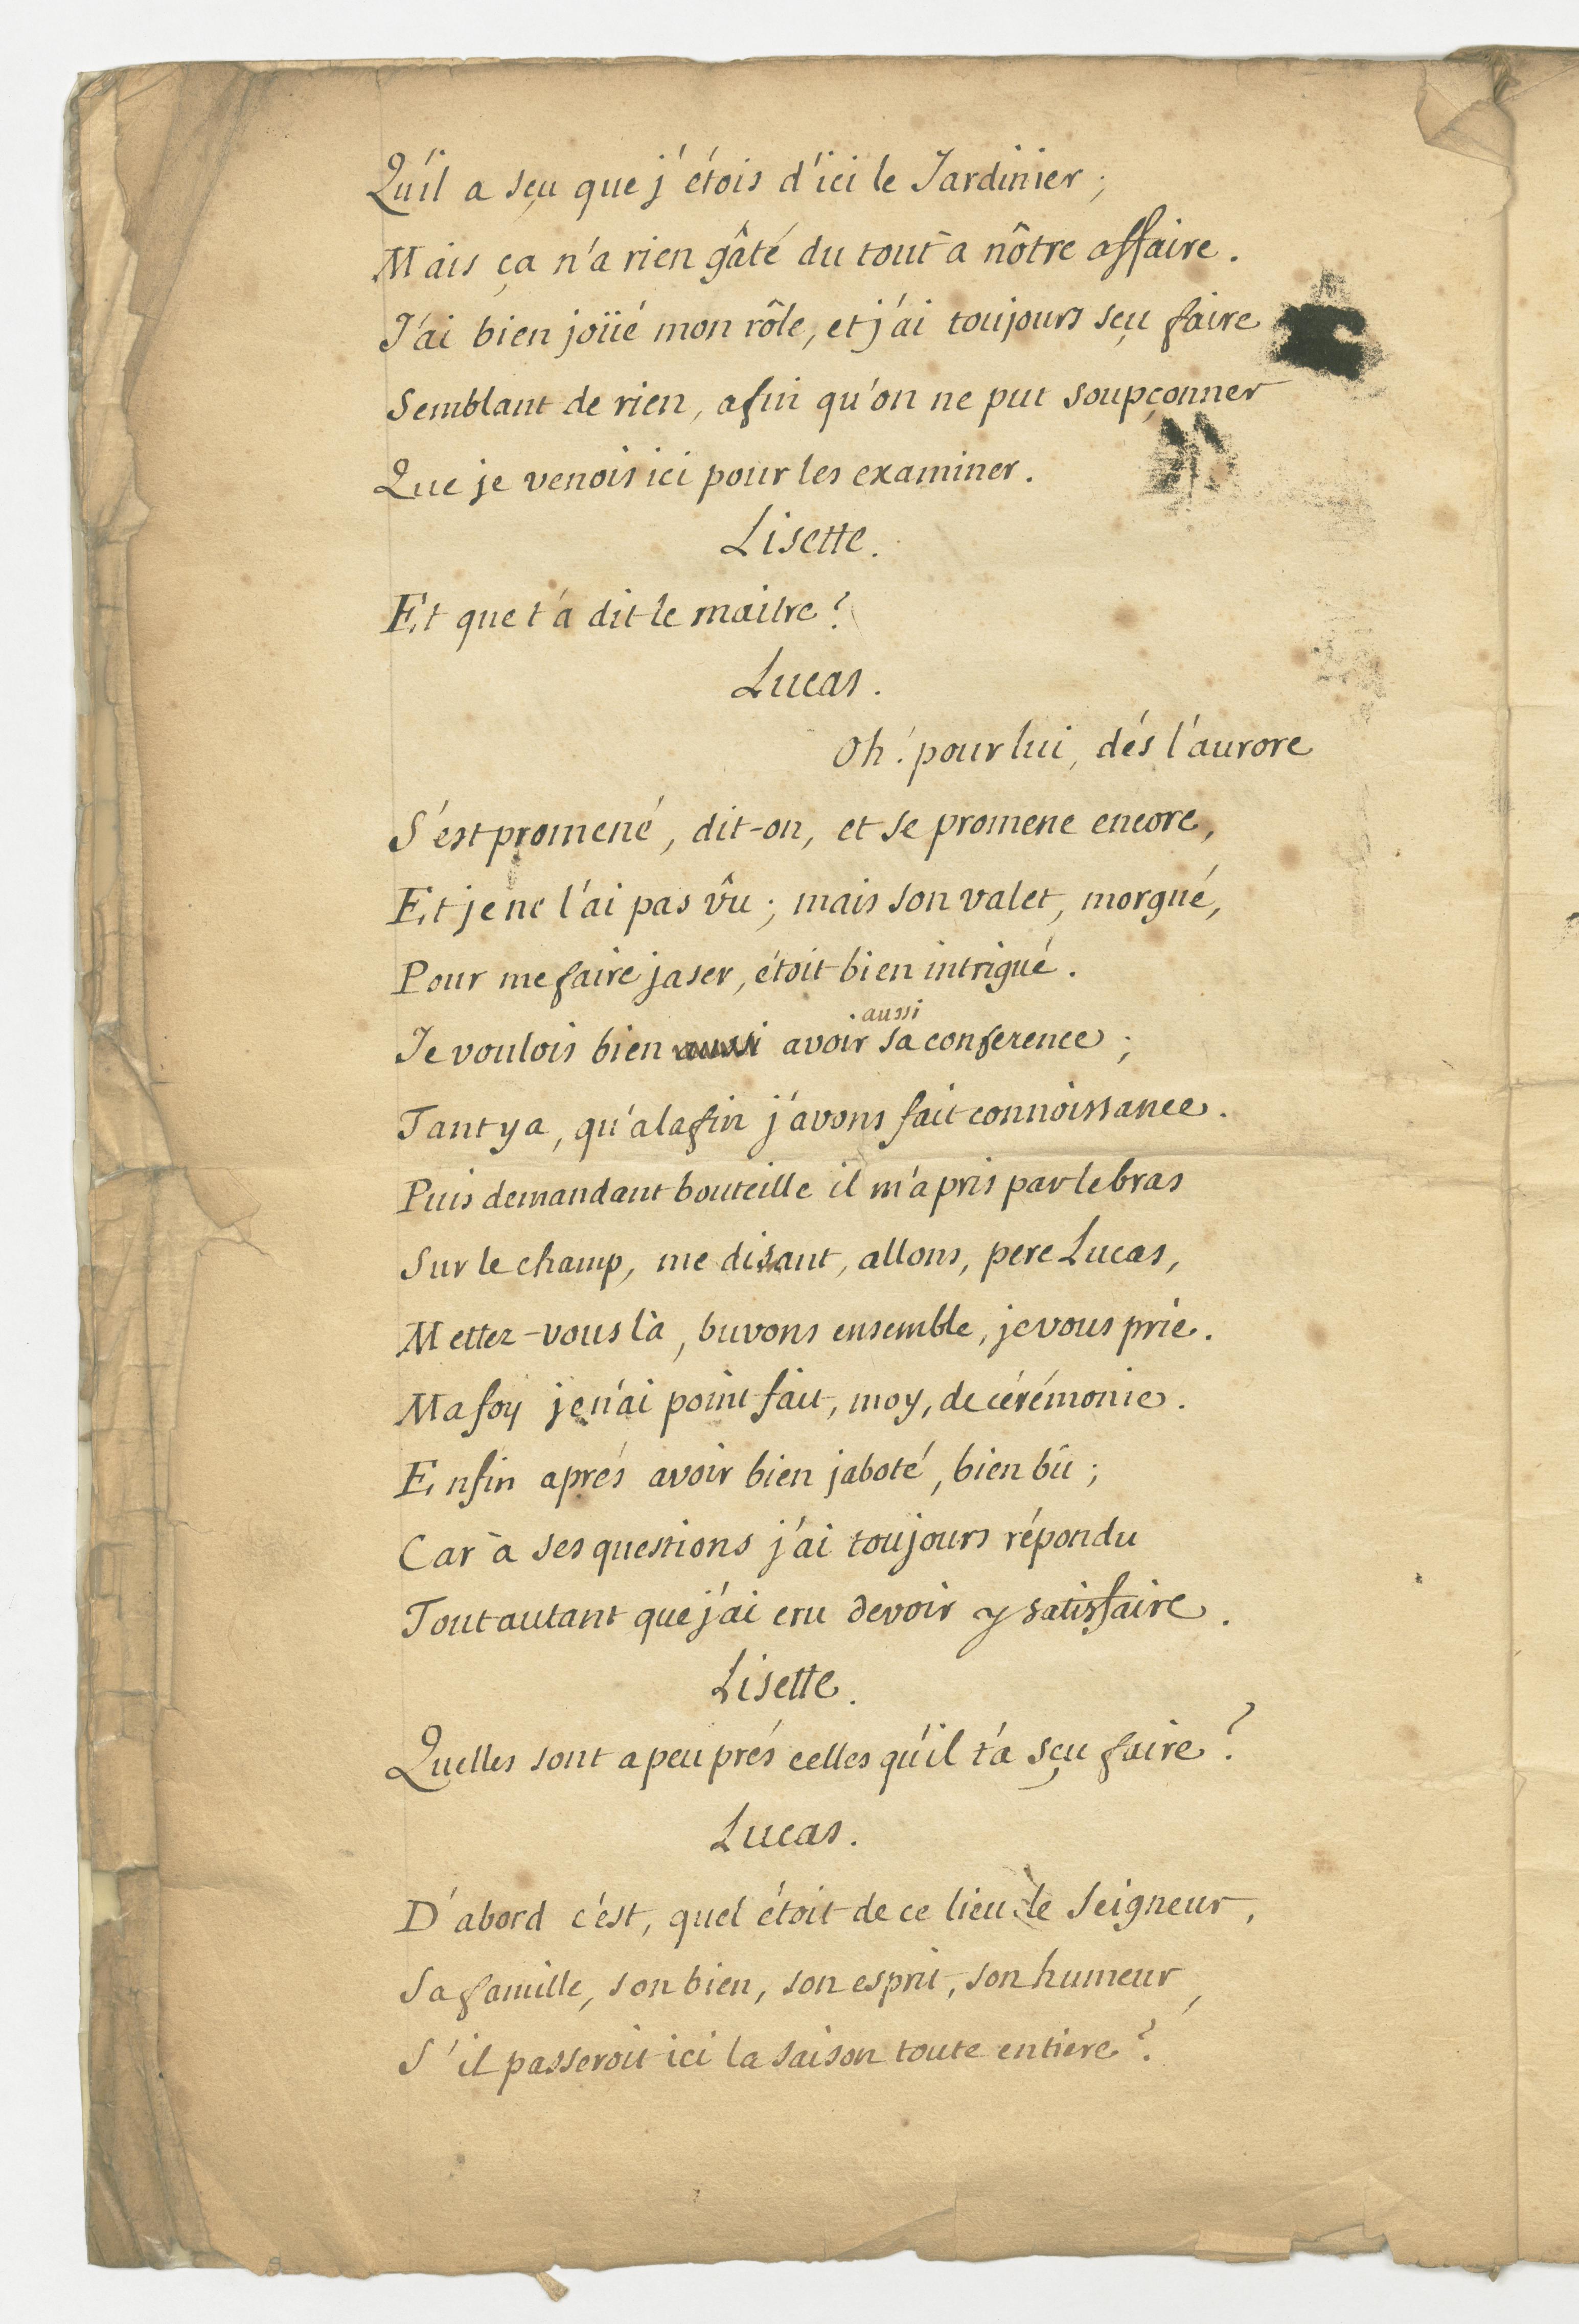 Qu'il a sçu que j'étois d'ici le Jardinier ;
Mais ça n'a rien gâté du tout à nôtre affaire.
J'ai bien joüé mon rôle, et j'ai toujours sçu faire
Semblant de rien, afin qu'on ne put soupçonner
Que je venois ici pour les examiner.
Lisette.
Et que t'a dit le maitre ?
Lucas.
Oh ! pour lui, dés l'aurore
S'est promené, dit-on, et se promene encore,
Et je ne l'ai pas vû ; mais son valet, morgué,
Pour me faire jaser, étoit bien intrigué.
aussi
Je voulois bien aussi avoir sa conference ;
Tant y a, qu'a la fin j'avons fait connoissance.
Puis demandant bouteille il m'a pris par le bras
Sur le champ, me disant, allons, pere Lucas,
Mettez-vous là, buvons ensemble, je vous prie.
Ma foy je n'ai point fait, moy, de cérémonie.
Enfin aprés avoir bien jaboté, bien bû ;
Car à ses questions j'ai toujours répondu
Tout autant que j'ai cru devoir y satisfaire.
Lisette.
Quelles sont a peu prés celles qu'il t'a sçu faire ?
Lucas.
D'abord c'est, quel étoit de ce lieu le Seigneur,
Sa famille, son bien, son esprit, son humeur,
S'il passeroit ici la saison toute entiere ?